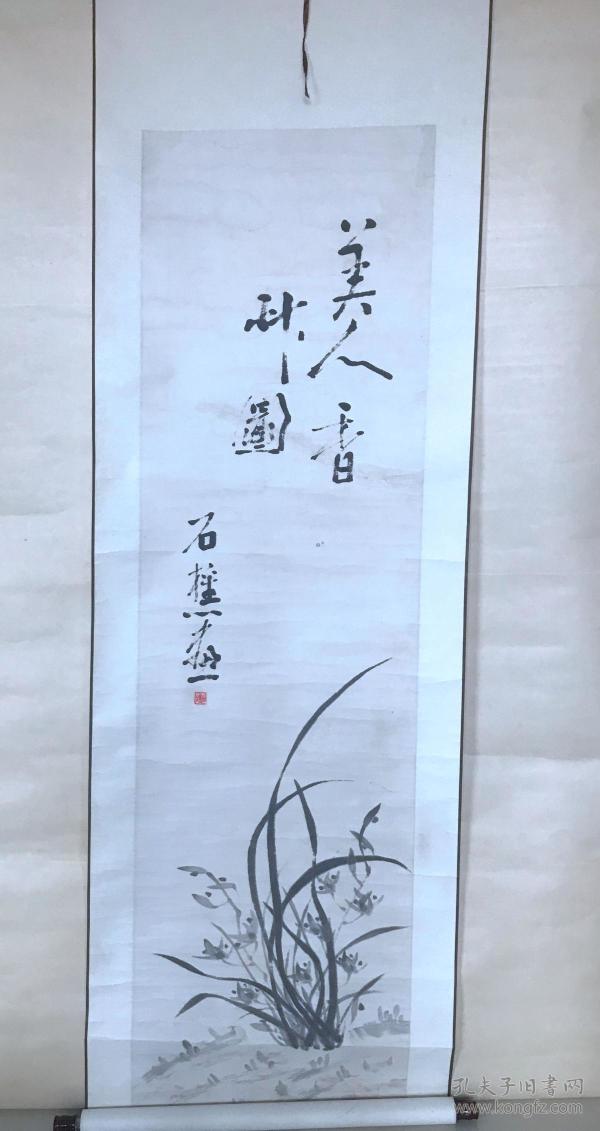 美人香
艸圖
石樵畫
孔夫子旧书网
www.kongfz.com